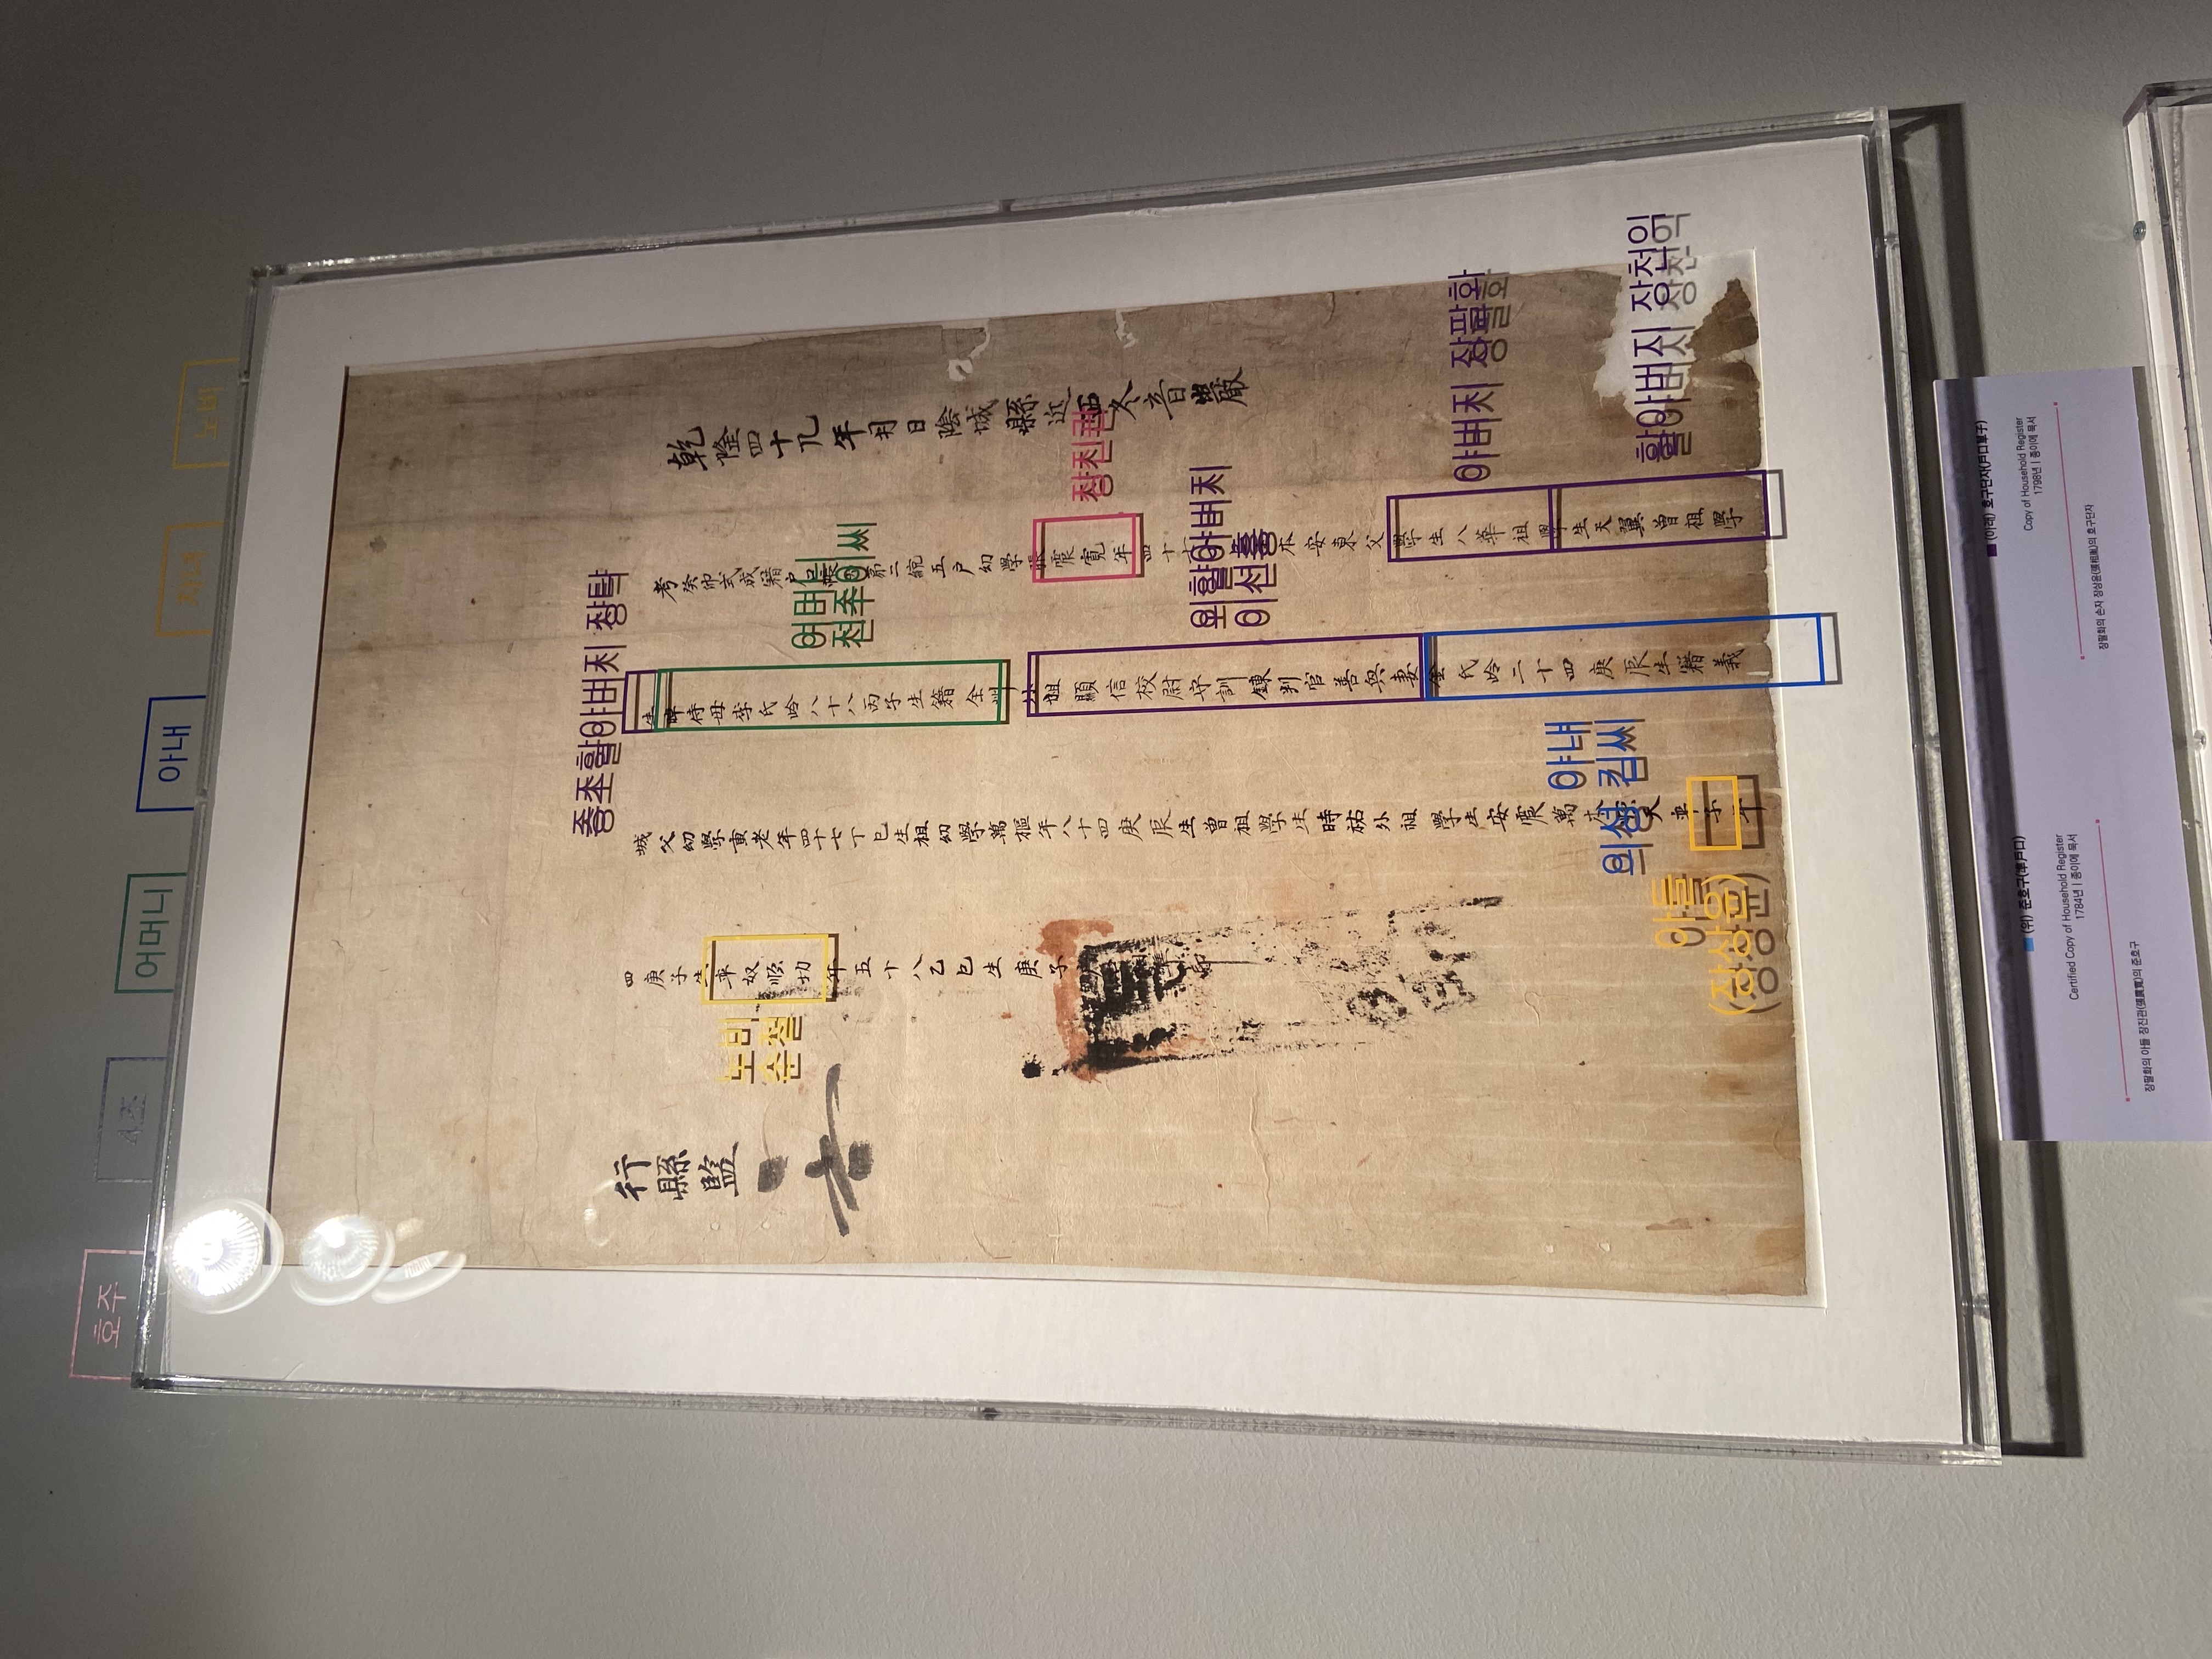 호주
4조
어머니
아내
자녀
노비
乾隆四十九年月日陰城縣近西冬音岩
考癸卯式成籍戶口帳 第二統五戶幼學張震寬年四十 本安東父學生八華祖學生天翼曾祖學
生晫侍母李氏齡八十八丙子生籍全州外祖顯信校尉守訓鍊判官善興妻金氏齡二十四庚辰生籍義
城父幼學寅老年四十七丁巳生祖幼學萬樞年八十四庚辰生曾祖學生時祐外祖學生安震萬本順天率子年
四庚子生率奴順切年五十八乙巳生庚子
行縣監
증조할아버지 장탁
어머니
전주이씨
장진관
외할아버지
이선흥
아버지 장팔화
할아버지 장천익
아내
의성 김씨
아들
(장상윤)
노비
순철
(위) 준호구(準戶口)
Certified Copy of Household Register
1784년 | 종이에 묵서
장팔화의 아들 장진관(張震寬)의 준호구
(아래) 호구단자(戶口單子)
Copy of Household Register
1798년 | 종이에 묵서
장팔화의 손자 장상윤(張相胤)의 호구단자